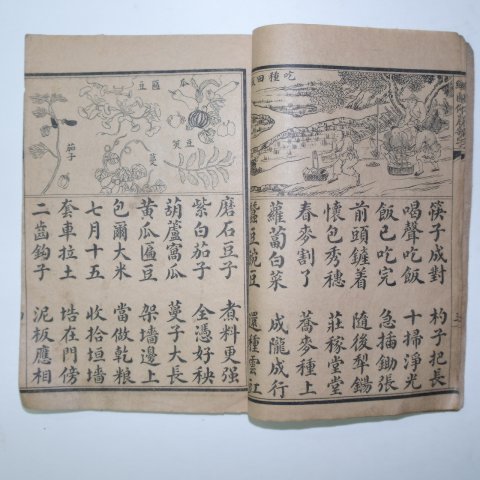 吃種田飯
筷子成對 杓子把長
喝聲吃飯 十掃淨光
飯已吃完 急插鋤張
前頭鏟着 隨後犁鐊
懷包秀穗 莊稼堂堂
春麥割了 蕎麥種上
蘿蔔白菜 成隴成行
蠶豆豌豆 還種雲江
瓜
匾豆
豆
蔓
茄子
磨石豆子 煮料更强
紫白茄子 全憑好秧
葫蘆窩瓜 蔓子大長
黃瓜匾豆 架墻邊上
包爾大米 當做乾粮
七月十五 收拾垣墻
套車拉土 在門傍
二齒鈎子 泥板應相